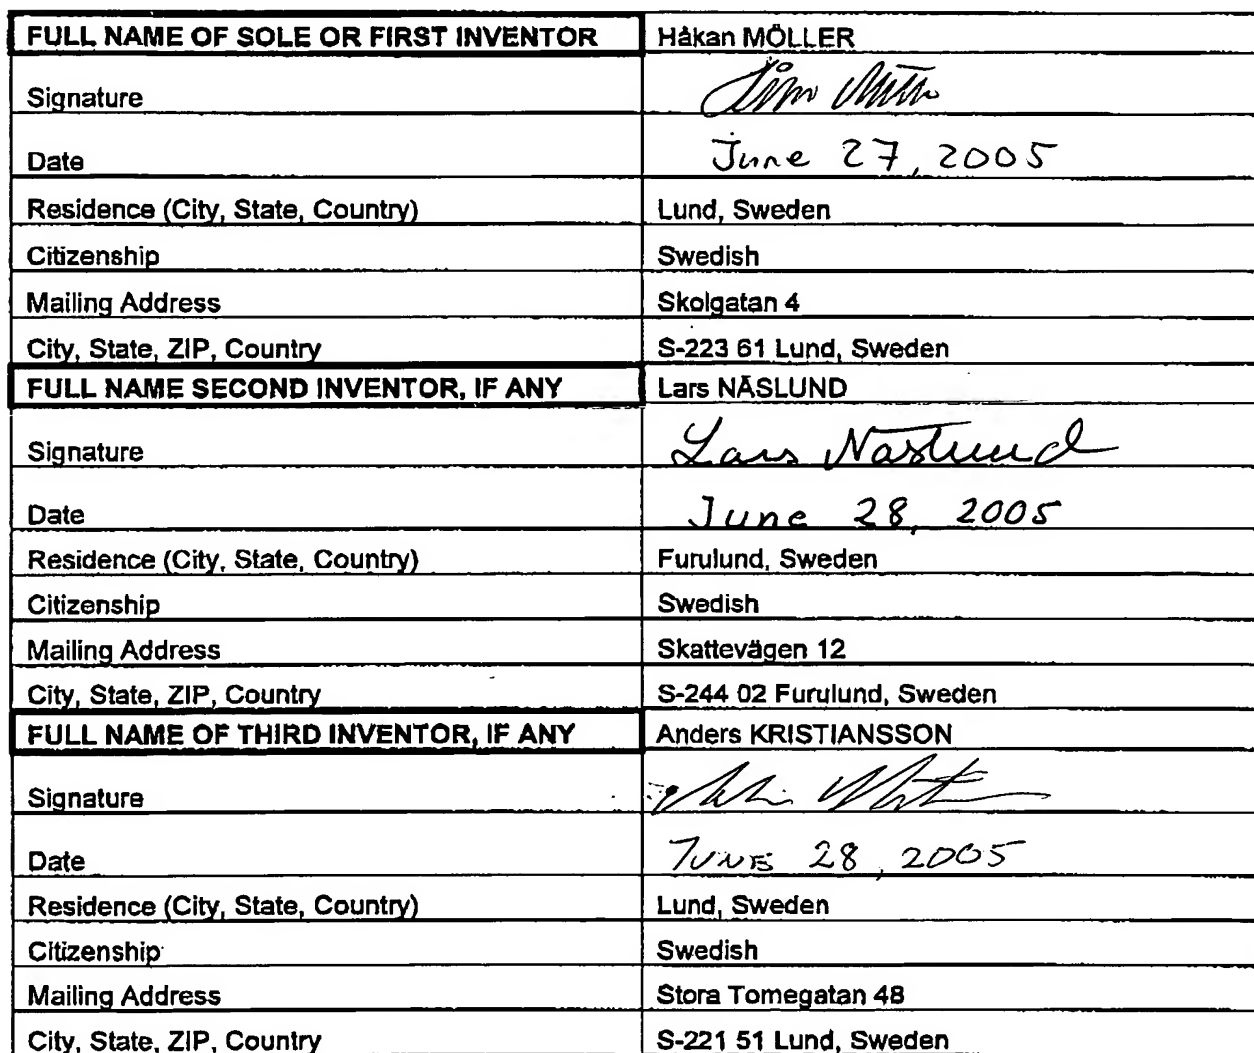 FULL NAME OF SOLE OR FIRST INVENTOR Håkan MÖLLER
Signature
Date June 27, 2005
Residence (City, State, Country) Lund, Sweden
Citizenship Swedish
Mailing Address Skolgatan 4
City, State, ZIP, Country S-223 61 Lund, Sweden
FULL NAME SECOND INVENTOR, IF ANY Lars NÄSLUND
Signature Lars Näslund
Date June 28, 2005
Residence (City, State, Country) Furulund, Sweden
Citizenship Swedish
Mailing Address Skattevägen 12
City, State, ZIP, Country S-244 02 Furulund, Sweden
FULL NAME OF THIRD INVENTOR, IF ANY Anders KRISTIANSSON
Signature
Date JUNE 28, 2005
Residence (City, State, Country) Lund, Sweden
Citizenship Swedish
Mailing Address Stora Tomegatan 48
City, State, ZIP, Country S-221 51 Lund, Sweden